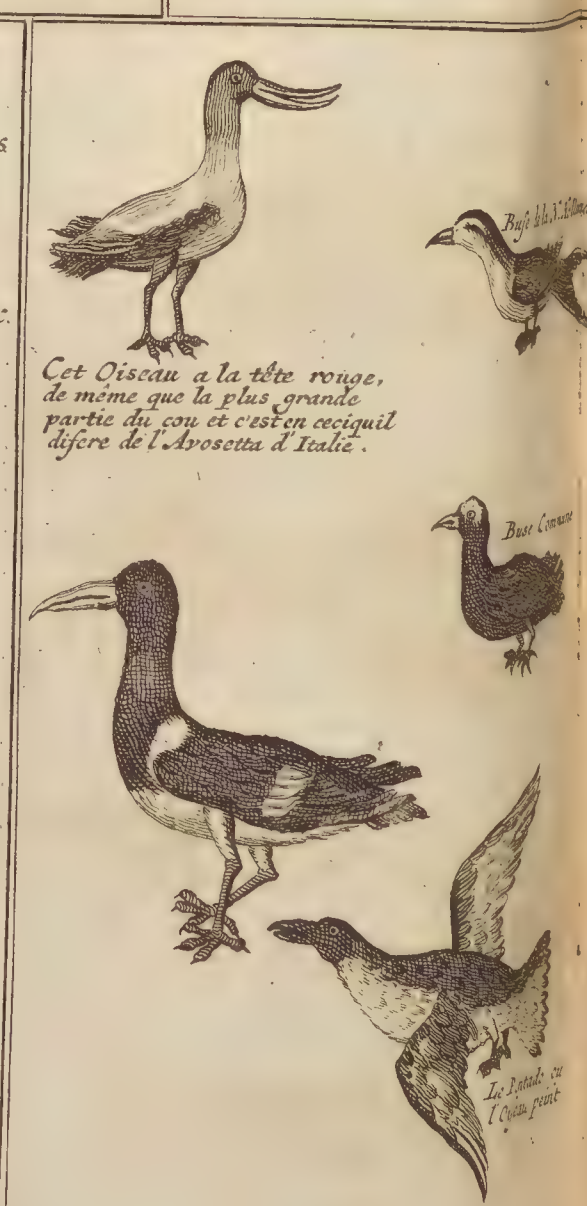 Cet Oiseau a la tête rouge,
de même que la plus grande
partie du cou et c'est en ceci quil
difere de l'Avosetta d'Italie.
Buse de la N.
Buse Commune
Le Pintado ou
l'Oiseau peint
s
c.